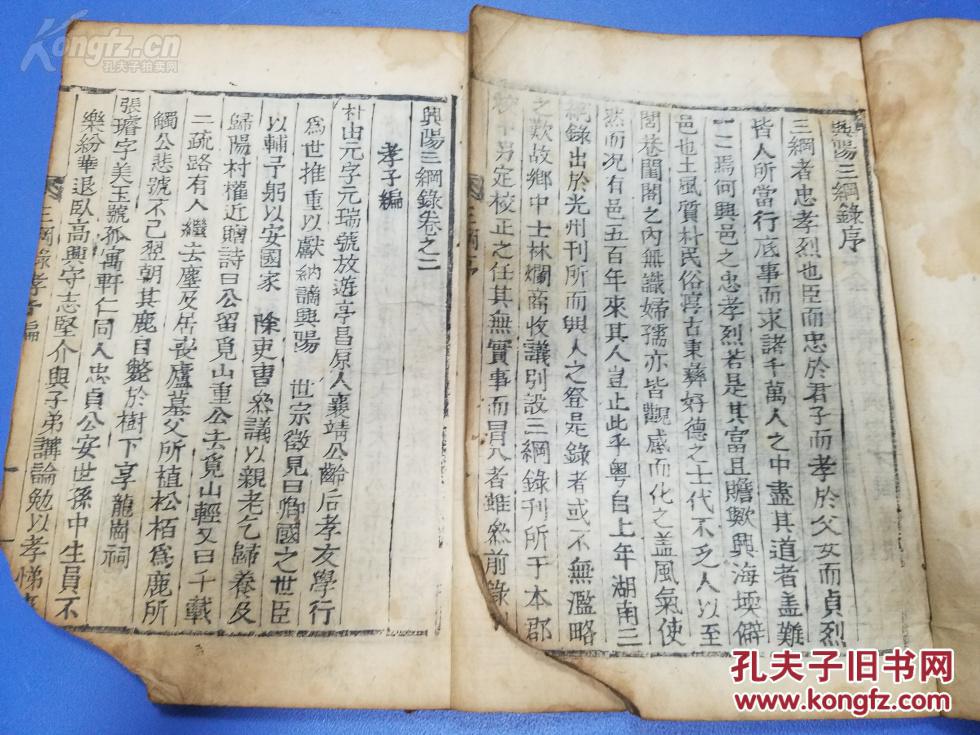 興陽三綱錄序
三綱者忠孝烈也臣而忠於君子而孝於父女而貞烈
皆人所當行底事而求諸千萬人之中盡其道者盖難
一二焉何興邑之忠孝烈若是其富且贍歟興海堧僻
邑也土風質朴民俗淳古秉彝好德之士代不乏人以至
閭巷閨閤之內無識婦孺亦皆觀感而化之盖風氣使
然而况有邑五百年來其人豈止此乎粤自上年湖南三
綱錄出於光州刊所而興人之登是錄者或不無濫略
之歎故鄉中士林爛商收議別設三綱錄刊所于本郡
另定校正之任其無實事而冒入者雖in前錄
興陽三綱錄卷之二
孝子編
朴由元字元瑞號放遊亭昌原人襄靖公齡后孝友學行
爲世推重以獻納謫興陽 世宗徵見曰卿國之世臣
以輔予躬以安國家 除吏曹參議以親老乞歸養及
歸陽村權近贈詩曰公留覓山重公去覓山輕又曰千載
二疏路有人繼去塵及居喪廬墓父所植松栢爲鹿所
觸公悲號不已翌朝其鹿自斃於樹下享龍崗祠
張璿字美玉號孤寓軒仁同人忠貞公安世孫中生員不
樂紛華退臥高興守志堅介與子弟講論勉以孝悌
三綱錄孝子編
Kongfz.cn
孔夫子拍卖网
孔夫子旧书网
www.kongfz.com